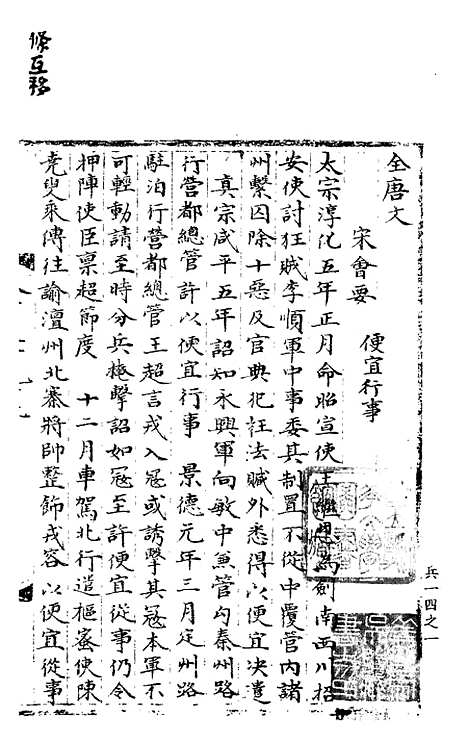 條互移
全唐文
宋會要
便宜行事
太宗淳化五年正月命昭宣使王繼恩為劍南西川招
安使討狂賊李順軍中事委其制置不從中覆管內諸
州繫囚除十惡及官典犯枉法贓外悉得以便宜决遣
真宗咸平五年詔知永興軍向敏中兼管勾秦州路
行營都總管許以便宜行事 景德元年三月定州路
駐泊行營都總管王超言戎入寇或誘擊其寇本軍不
可輕動請至時分兵掩擊詔如寇至許便宜從事仍令
押陣使臣稟超節度 十二月車駕北行遣樞密使陳
堯叟乘傳往諭澶州北寨將帥整飾戎容以便宜從事
兵一四之一